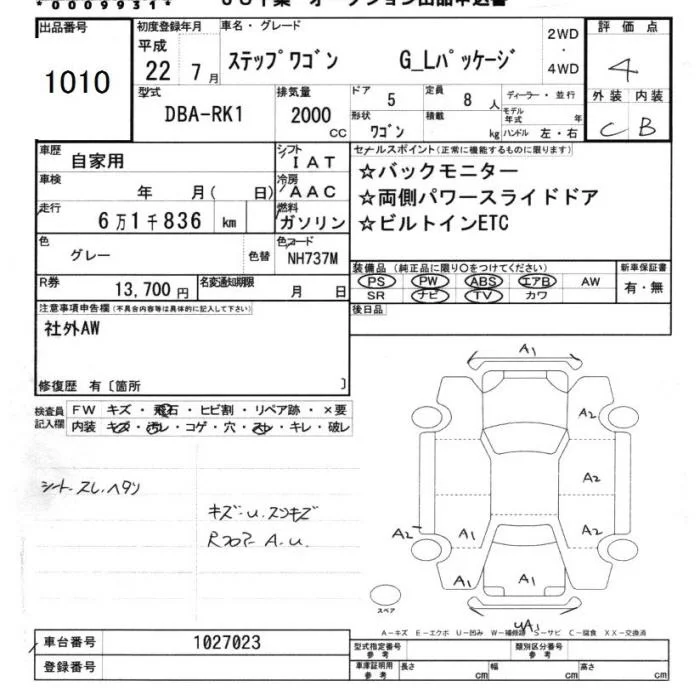 *0009931*
出品番号
1010
初度登録年月
平成
22 7月
車名・グレード
ステップワゴン G_Lパッケージ
2WD
・
4WD
評価点
4
外装 内装
C B
型式
DBA-RK1
排気量
2000
CC
ドア
5
定員
8 人
ディーラー・並行
形状
ワゴン
積載
kg
モデル年式 年
ハンドル 左・右
車歴
自家用
シフト
IAT
車検
年 月( 日)
冷房
AAC
走行
6万1千836 km
燃料
ガソリン
色
グレー
色替
色コード
NH737M
R券
13,700円
名変通知期限
月 日
セールスポイント(正常に機能するものに限ります)
☆バックモニター
☆両側パワースライドドア
☆ビルトインETC
装備品(純正品に限り○をつけてください)
PS PW ABS エアB AW
SR ナビ TV カワ
新車保証書
有・無
後日品
注意事項申告欄(不具合内容等は具体的に記入して下さい)
社外AW
修復歴 有〔箇所 〕
検査員記入欄
FW キズ・飛石・ヒビ割・リペア跡・×要
内装 キズ・汚レ・コゲ・穴・スレ・キレ・破レ
シート スレ、ヘタリ
キズ・u.スリキズ
Rフロアー A.u.
A1
A2
A2
A2 A1 A2
A1 A1 A1
スペア
A1
A-キズ E-エクボ U-凹み W-補修跡 S-サビ C-腐食 XX-交換済
車台番号
1027023
登録番号
型式指定番号
参考
類別区分番号
参考
車庫証明用
参考
長さ cm 幅 cm 高さ cm